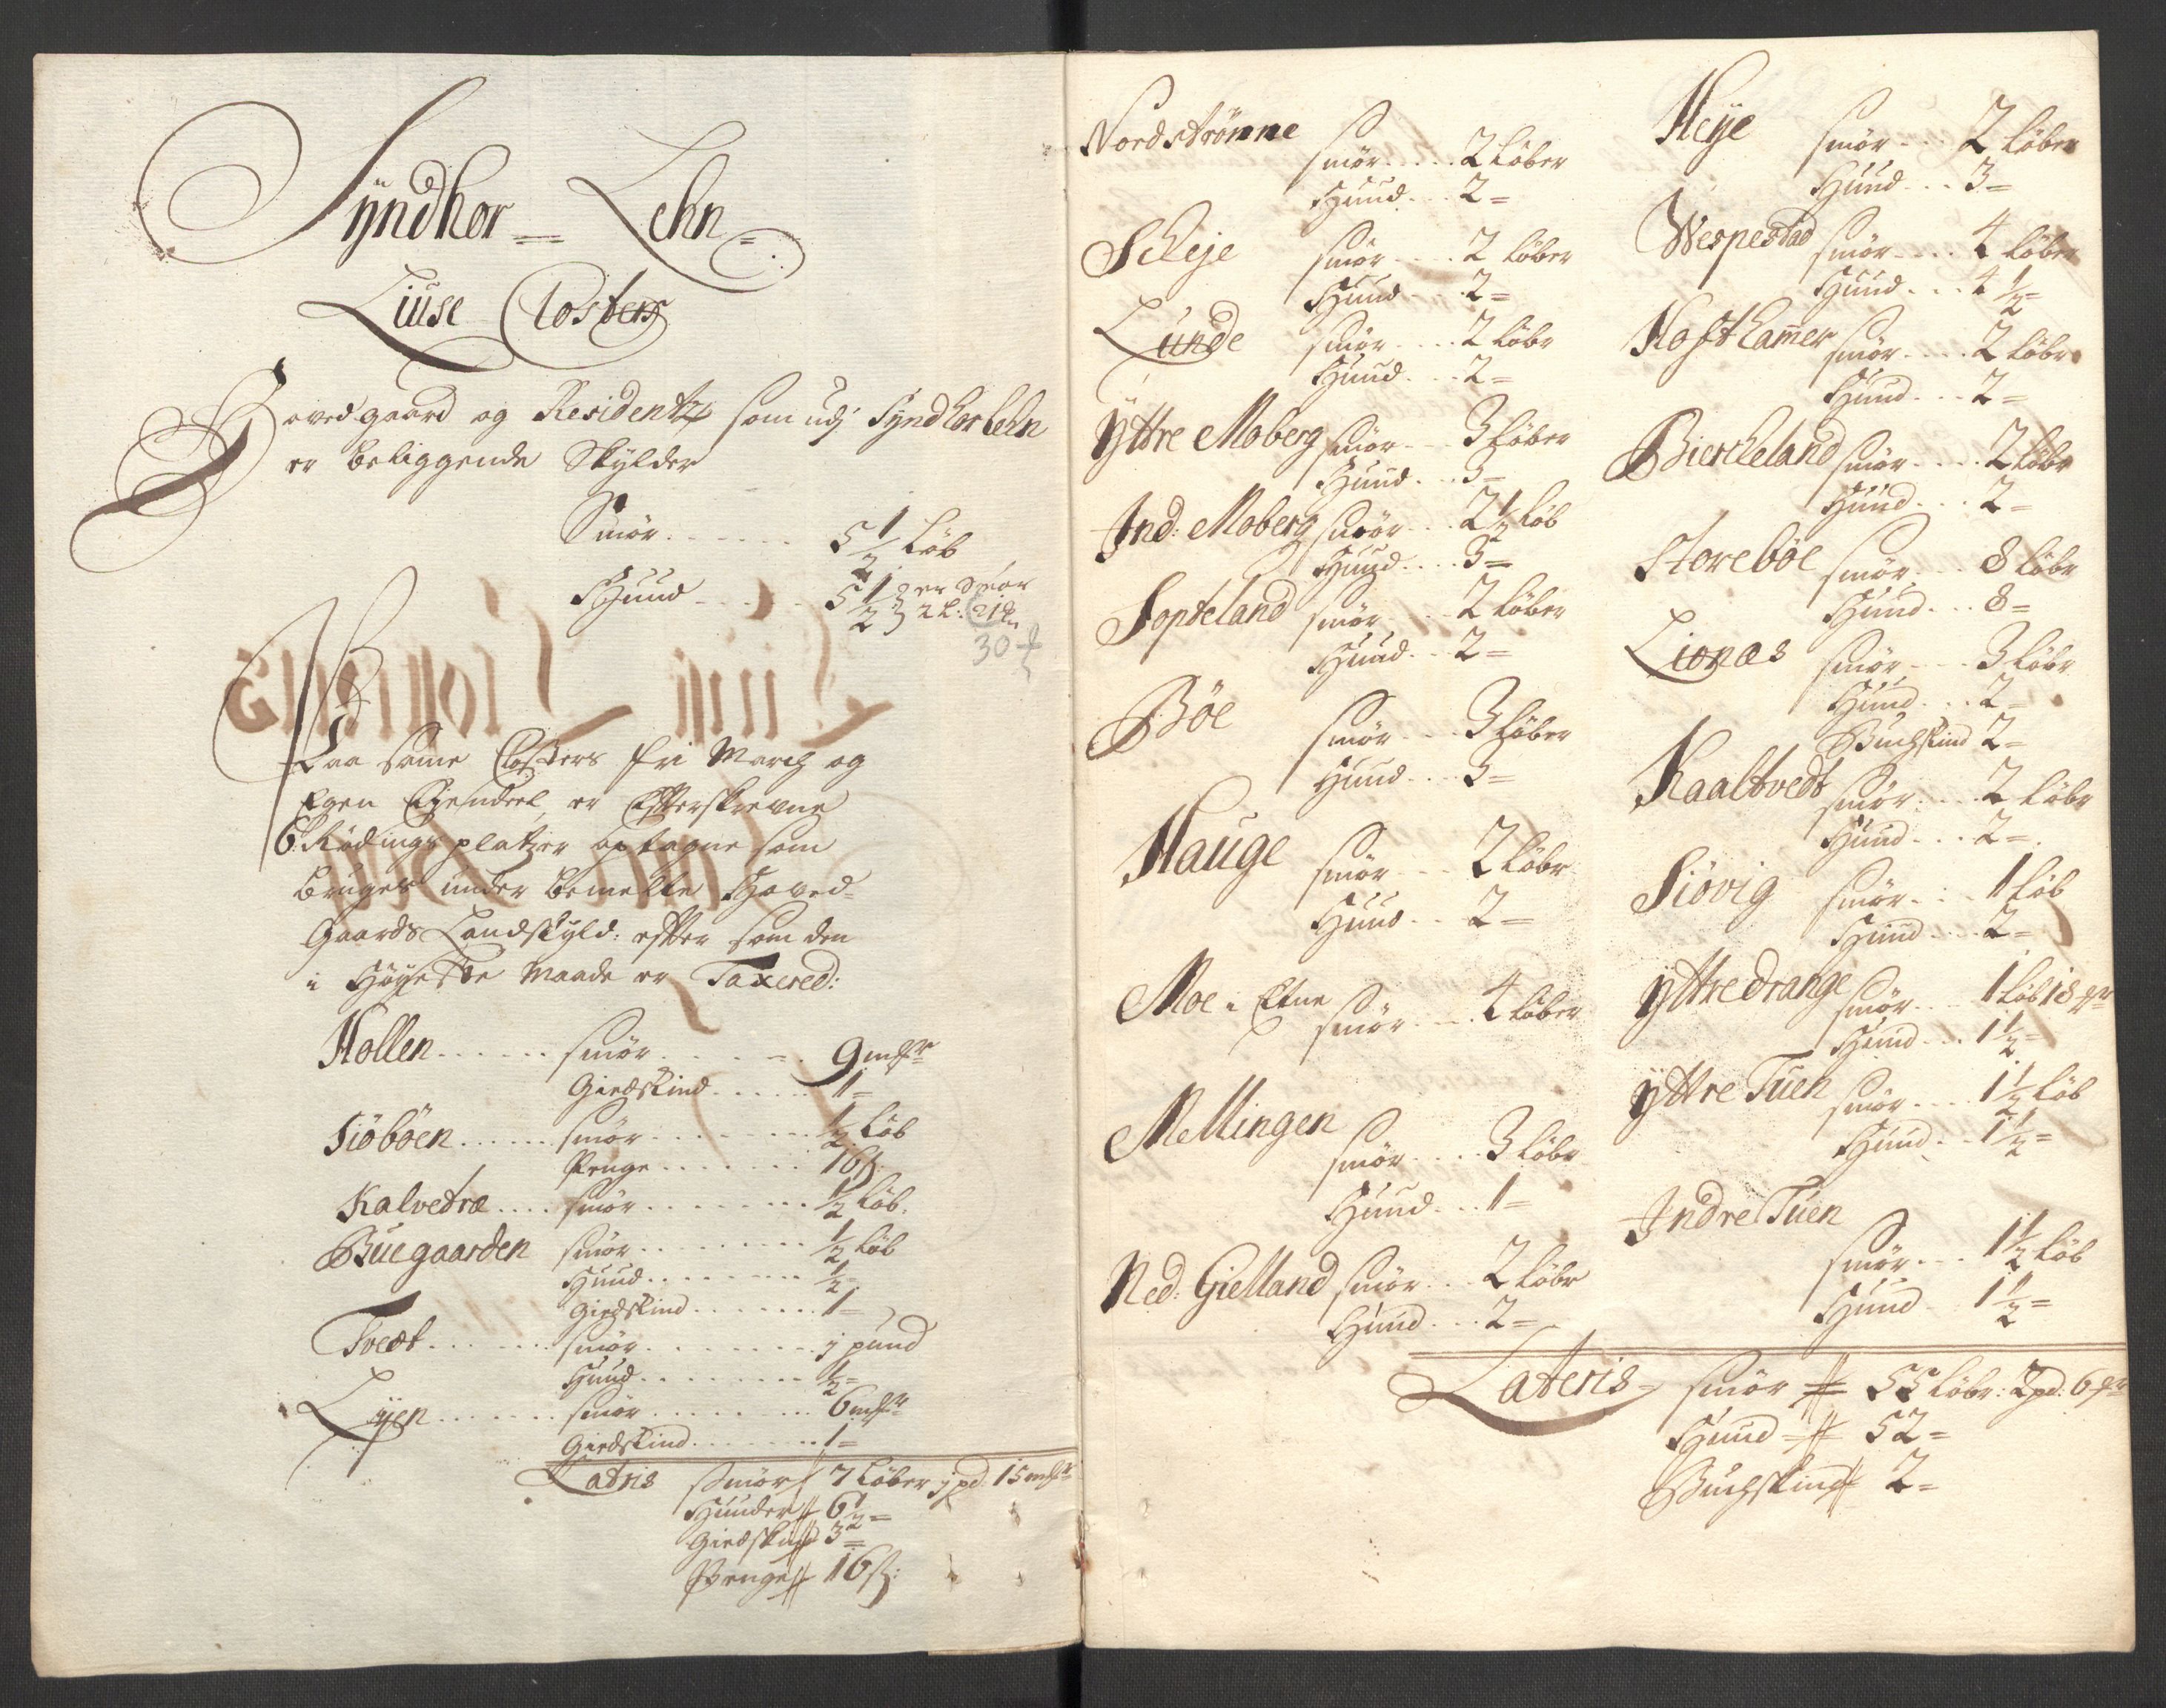 Syndhor = Lehn
Liuse Closters
Hoved gaard og Residentz som udj Syndhorlehn
er beliggende Skylder
Smör ...... 5 1/2 Löb
Huud ...... 5 1/2 er Smör
2 L: 21
30
Paa same Closters fri March og
Egen Ejendeel er Efterskrevne
6 Rödings platzer optagne som
bruges under bemelte Hoved-
Gaards Landskyld: efter som den
i Höyeste Maade er Taxered:
Hollen ...... smör ...... 9 mkr
Giedskind ..... 1 =
Siöböen ...... smör ...... 1/2 Löb
Penge ...... 16 ß:
Kalvetræ .... smör ...... 1/2 Löb.
Buegaarden smör ...... 1/2 Löb
Huud ...... 1/2
Giedskind ...... 1 =
Tvedt ...... smör ...... j pund
Huud ...... 1/2 =
Lyen ...... smör ...... 6 mkr
Giedskind ...... 1 =
Latris smör 7 Löber j pd. 15 mkr
Huuder 6 1/2 =
Giedskind 3 =
Penge 16 ß:
Nordströnne
smör .... 2 Löber
Huud ... 2 =
Scheje smör .... 2 Löber
Huud .. 2 =
Lunde smör .... 2 Löbr
Huud ... 2 =
Yttre Moberg smör ... 3 Löber
Huud ... 3 =
Ind: Moberg smör ... 2 1/2 Löb
Huud .... 3 =
Sopteland smör ... 2 Löber
Huud ... 2 =
Böe smör ... 3 Löber
Huud ... 3 =
Hauge smör ... 2 Löbr
Huud ... 2 =
Moe i Etne
smör .... 4 Löber
Mellingen
smör .... 3 Löbr
Huud ... 1 =
Ned: Gielland smör ... 2 Löbr
Huud ... 2 =
Heye smör ... 2 Löber
Huud ... 3 =
Wespestad smör .... 4 Löber
Huud .... 4 1/2 =
Hostkamer smör .... 2 Löbr
Huud ... 2 =
Bierckeland smör .... 2 Löbr
Huud ... 2 =
Storeböe smör ... 8 Löbr
Huud ... 8 =
Lionæs smör .... 3 Löbr
Huud ... 2 =
Buchskind 2 =
Kaaltvedt smör .... 2 Löbr
Huud ... 2 =
Siövig smör ... 1 Löb
Huud ... 2 =
Yttre Drange smör ... 1 Löb 18 mr
Huud ... 1 1/2 =
Yttre Tuen smör .... 1 1/2 Löb
Huud .. 1 1/2 =
Indre Tuen
smör ... 1 1/2 Löb
Huud 1 1/2 =
Lateris = smör 55 Löbr: 2 pd: 6 mr
Huud = 52 =
Buchskind 2 =